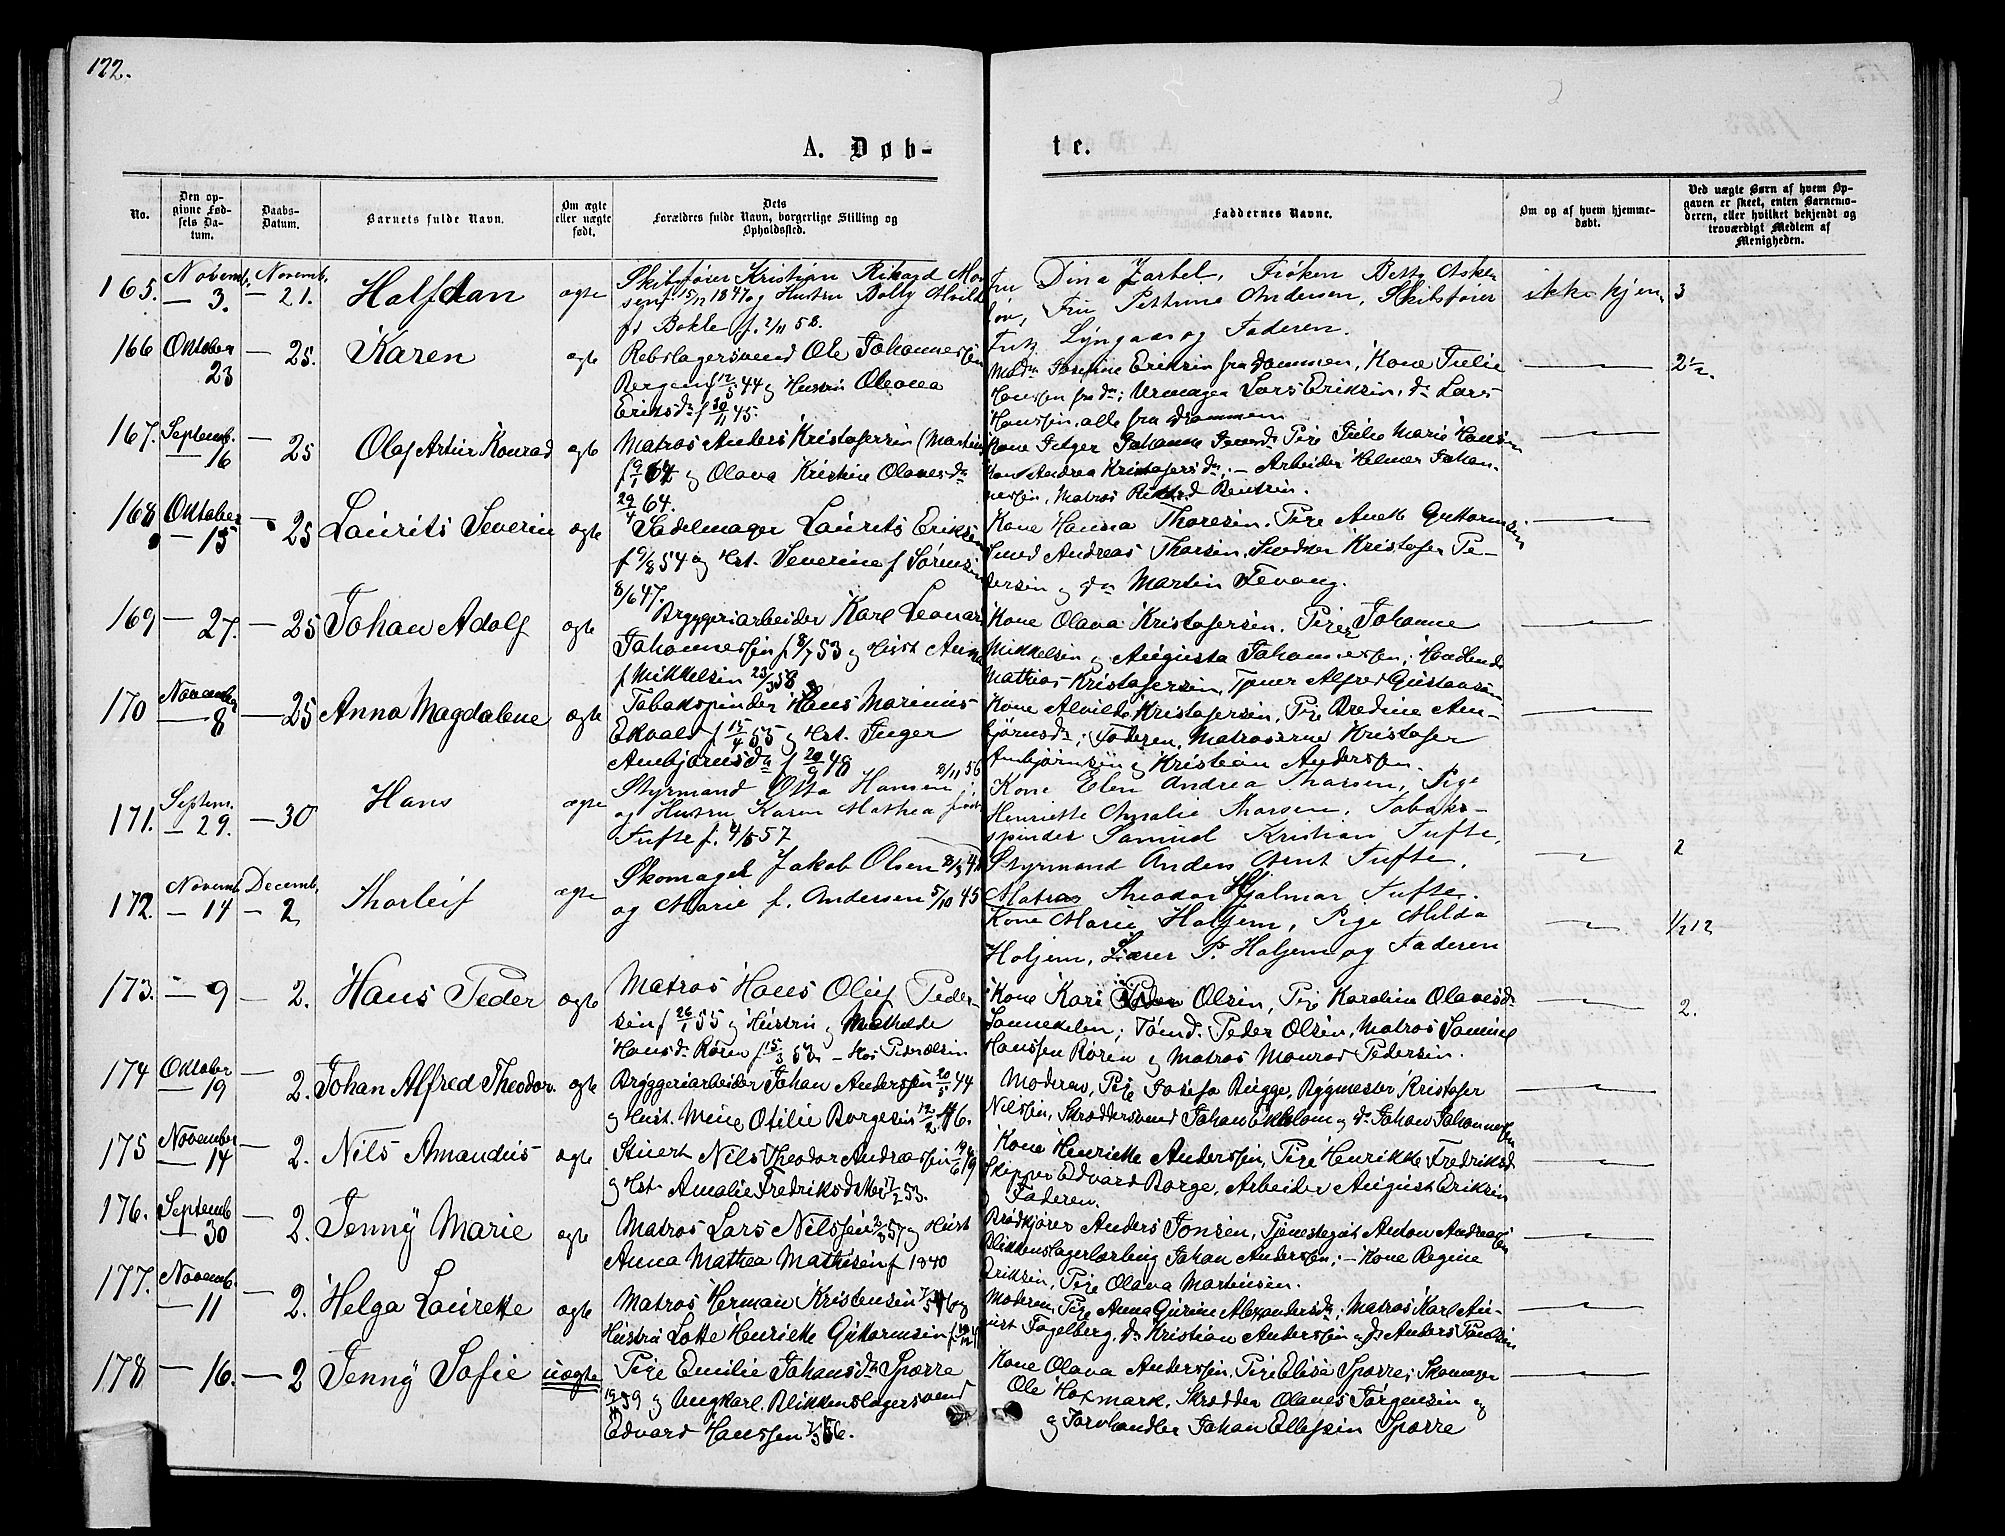 122.
A. Døb-
te.
No.
Den op-
givne Fød-
sels Da-
tum.
Daabs-
Datum.
Barnets fulde Navn.
Om ægte
eller uægte
født.
Dets
Forældres fulde Navn, borgerlige Stilling og
Opholdssted.
Faddernes Navne.
Om og af hvem hjemme-
døbt.
Ved uægte Børn af hvem Op-
gaven er skeet, enten Barnemo-
deren, eller hvilket bekjendt og
troværdigt Medlem af
Menigheden.
165. Novemb. 3. Novemb. 21. Halfdan ægte
Skibsfører Kristian Rikard
15/12 1847 og Hustru Dolly
Bokle f. 2/11 58.
Fru Dina Zartel, Frøken Betty
Fru Petrine Andersen, Skibsfører
Lyngaas og Faderen.
ikke hjem. 3
166 Oktober 23 — 25. Karen ægte
Rebslagersvend Ole Johannessen
Bergem f 12/5 44 og Hustru Oleana
Eriksdr f 30/11 45.
Eriksen fra Drammen, Kone Julie
Hanssen fra do; Urmager Lars Eriksen, do Lars
Hanssen, alle fra Drammen
— 2½.
167. Septemb. 16 — 25 Olaf Artur Konrad ægte
Matros Anders Kristofersen (Martin
og Olava Kristine Olavesdr
29/4 64.
Kone Johanne Pige Julie Marie Hansen
Kone Andrea Kristofersdr; — Arbeider Helmer Johan-
nessen, Matros Rikard Bentsen.
—
168 Oktober — 15 — 25 Laurits Severin ægte
Sadelmager Laurits Eriksen
f 9/8 54 og Hst. Severine f Sørensen
8/6 47.
Kone Hanna Thoresen. Pige Anette Guttormsen
Smed Andreas Thorsen. Snedker Kristofer Pe-
dersen og do Martin Fevang.
—
169 — 27. — 25 Johan Adolf ægte
Bryggeriarbeider Karl Leonard
Johannessen f 8/7 53 og Hust Anna
f Mikkelsen 23/3 58
Kone Olava Kristofersen. Piger Johanne
Mikkelsen og Augusta Johannessen;
Mathias Kristofersen, Tjener Alfred Gustavsen
—
170 November — 8 — 25 Anna Magdalene ægte
Tobakspinder Hans Marinius
Ekvald f 15/4 55 og Hst. Inger
Arnbjørnsdr f 20/9 48
Kone Alvilde Kristofersen, Pige Bredine Arn-
bjørnsdr; Faderen, Matroserne Kristofer
Arnbjørnsen og Kristian Anderssen.
—
171. Septem. — 29. — 30 Hans ægte
Styrmand Otto Hansen f. 2/11 56
og Hustru Karen Mathea født
Tufte f. 4/5 57
Kone Elen Andrea Thorsen, Pige
Henriette Amalie Thorsen, Tobaks-
spinder Samuel Kristian Tufte,
Styrmand Anders Arnt Tufte,
Matros Theodor Hjalmar Tufte.
— 2
172. Novemb. — 14 Decemb. — 2 Thorleif ægte
Skomager Jakob Olsen
og Marie f. Andersen 5/10 45
Kone Marie Holjem, Pige Milda
Holjem, Lærer P. Holjem og Faderen
— 1/2 12
173. — 9 — 2. Hans Peder ægte
Matros Hans Oluf Peder-
sen f 26/1 55 og Hustru Mathilde
Hansdr Røren f 15/3 53
Kone Kari Olsen, Pige Karoline Olavesdr
Tømd. Peder Olsen, Matros Samuel
Hanssen Røren og Matros Monrad Pedersen.
— 2.
174 Oktober — 19 — 2. Johan Alfred Theodor. ægte
Bryggeriarbeider Johan Anderssen 20/5 44
og Hust. Mine Otilie Borgesen 12/2 46.
Moderen, Pige Josefa Bugge, Bygmester Kristofer
Nilssen, Skræddersvend Johan Ekblom og do Johan Johannessen
—
175 November — 14 — 2. Nils Amandus ægte
Stuert Nils Theodor Andreassen
og Hst Amalie Fredriksdr
Kone Henriette Anderssen, Pige Henrikke Fredriksd
Skipper Edvard Borge, Arbeider August Eriksen
og Faderen.
—
176. Septemb 30 — 2. Jenny Marie ægte
Matros Lars Nilssen 2/3 57 og Hust
Anna Mathea Mathisen f 1840
Brødkjører Anders Jonsen, Tjenestegut Anton Andreassen
Blikkenslagerlærling Johan Anderssen; — Kone Regine
Eriksen, Pige Olava Martinsen.
—
177. Novemb. — 11 — 2. Helga Laurette ægte
Matros Herman Kristensen
Hustru Lotte Henriette Guttormsen
Moderen, Pige Anna Gurine Alexandersdr; Matros Karl Au-
gust Fagelberg, do Kristian Anderssen og do Anders Paulsen
—
178 — 16. — 2 Jenny Sofie uægte
Pige Emilie Johansdr Sporre
og Ungkarl. Blikkenslagersvend
Edvard Hanssen 7/3 56.
Kone Olava Anderssen, Pige Elise Sporre; Skomager
Ole Hoxmark, Skrædder Olaves Jørgensen og
og Farvhandler Johan Ellefsen Sporre
—